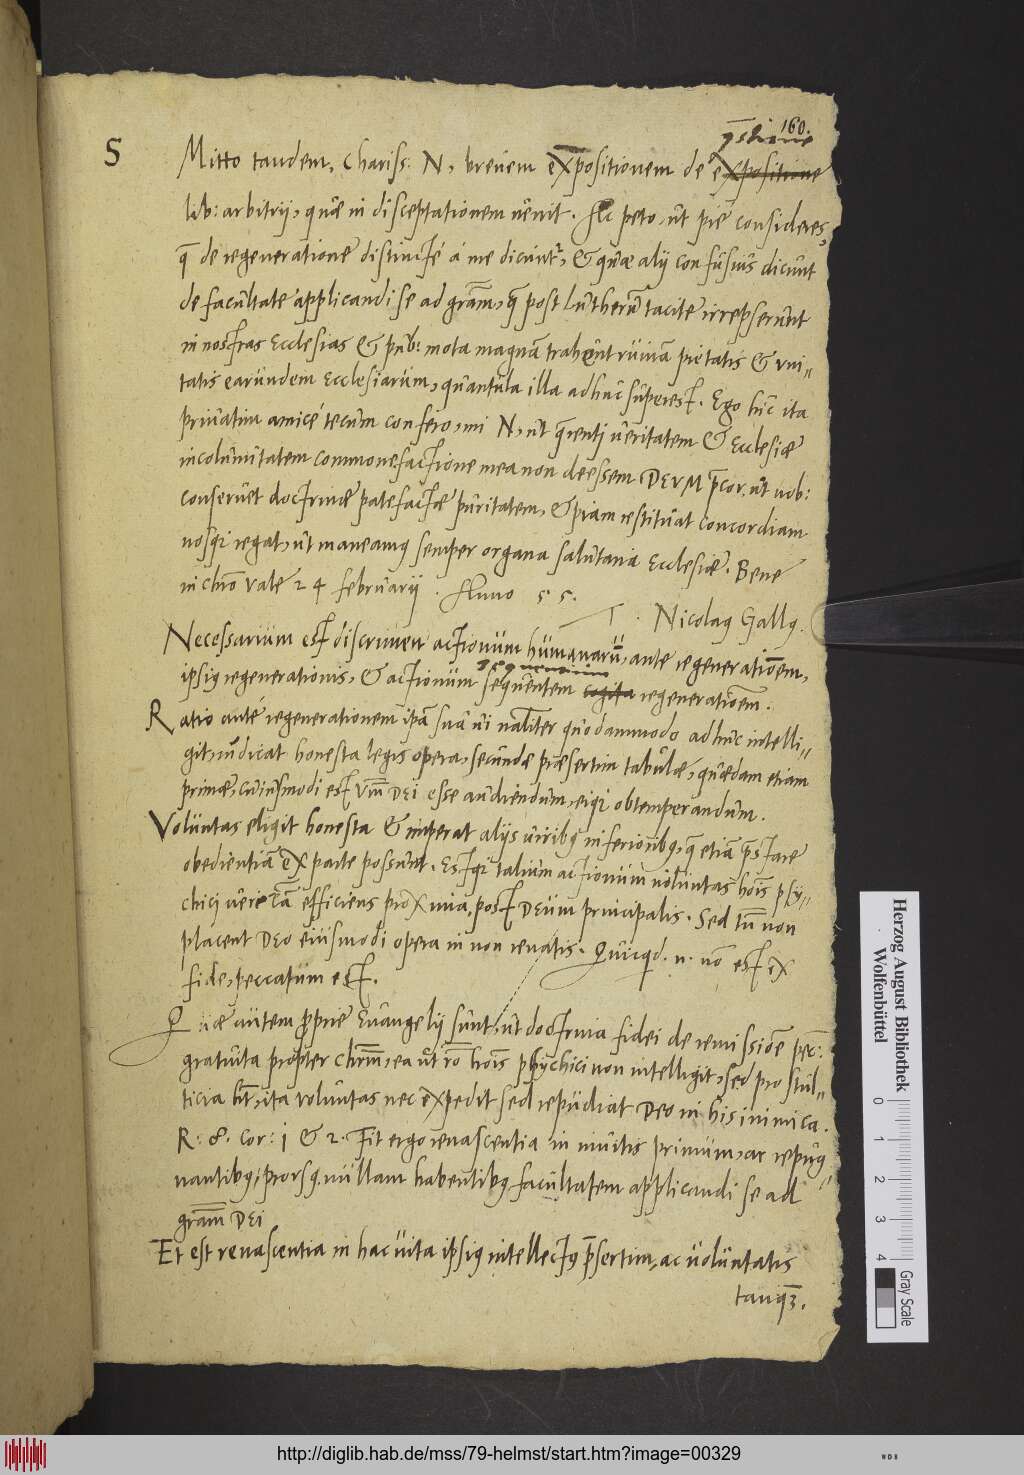 160.
q̄stione
S Mitto tandem, Chariss: N, brevem expositionem de expositione
lib: arbitrij, quæ in disceptationem venit. Ac peto, ut pie consideres,
q̄ de regeneratione distincté á me dicunt᷑, & quæ alij confusius dicunt
de facultate applicandi se ad gr̄am, q̄ post Lutherū tacite irrepserunt
in nostras Ecclesias & pub: mota magnā trahunt ruinā pietatis & uni„
tatis earundem Ecclesiarum, quantula illa adhuc superest. Ego hīc ita
privatim amicé tecum confero, mi N, ut q̄renti veritatem & Ecclesiæ
incolumitatem commonefactione mea non deessem, DEUM p̄cor, ut nob:
conservet doctrinæ patefactæ puritatem, & piam restituat concordiam
nosq; regat, ut maneamꝰ semper organa salutaria Ecclesiæ. Bene
in chr̄o vale 24 februarij. Anno 55.
T. Nicolaꝰ Gallꝰ.
Necessarium est discrimen actionum humanarū, ante regenerationem,
ipsiꝰ regenerationis, & actionum sequentem regenerationem.
Ratio ante regenerationem ip̄a sua vi nāliter quodammodo adhuc intelli„
git, iudicat honesta legis opera, secundæ præsertim tabulæ, quædam etiam
primæ, cuiusmodi est DEI esse audiendum, eiq; obtemperandum.
Voluntas eligit honesta & imperat alijs viribꝰ inferioribꝰ, q̄ etiā p̄stare
obedientiā ex parte possunt. Estq; talium actionum voluntas hōis psy„
chici vere cā efficiens proxima, post DEUM principalis. Sed tn̄ non
placent DEO eiusmodi opera in non renatis. Quicqd. n. nō est ex
fide, peccatum est.
Quæ autem ꝓprie Evangelij sunt, ut doctrina fidei de remissiōe pec:
gratuita propter Chr̄m, ea ut rō hōis psychici non intelligit, sed pro stul„
ticia ht̄, ita voluntas nec expedit sed repudiat DEO in his inimica.
R: 8. Cor: 1 & 2. Fit ergo renascentia in invitis primum, ac repug„
nantibꝰ, prorsꝰ nullam habentibꝰ facultatem applicandi se ad
gr̄am DEI
Et est renascentia in hac vita ipsiꝰ intellectꝰ p̄sertim, ac voluntatis
tanq̄3.
Herzog August Bibliothek
Wolfenbüttel
0 1 2 3 4 Gray Scale
http://diglib.hab.de/mss/79-helmst/start.htm?image=00329
WDB